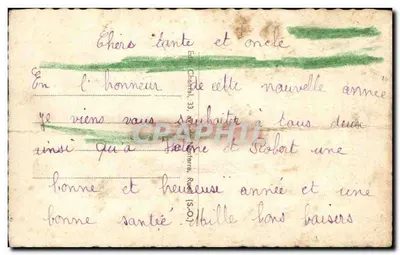 Chers tante et oncle
En l'honneur de cette nouvelle année
je viens vous souhaiter à tous deux
ainsi qu'à Hélène et Robert une
bonne et heureuse année et une
bonne santé. Mille bons baisers
CPAPHIL